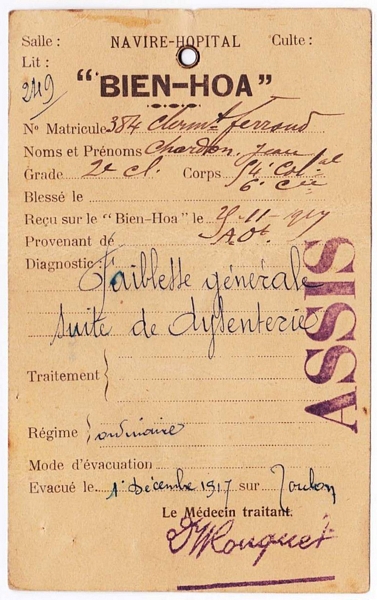 Salle : NAVIRE-HOPITAL Culte :
Lit :
249
"BIEN-HOA"
No Matricule 384 Clermt Ferrand
Noms et Prénoms Chardon Jean
Grade 2e cl. Corps 54e Colal
6e Cie
Blessé le
Reçu sur le "Bien-Hoa" le 25-11-917
Provenant de A.Ot.
Diagnostic : Faiblesse générale
suite de dysenterie
ASSIS
Traitement
Régime ordinaire
Mode d'évacuation
Evacué le 1er Décembre 1917 sur Toulon
Le Médecin traitant.
Dr Rouquet